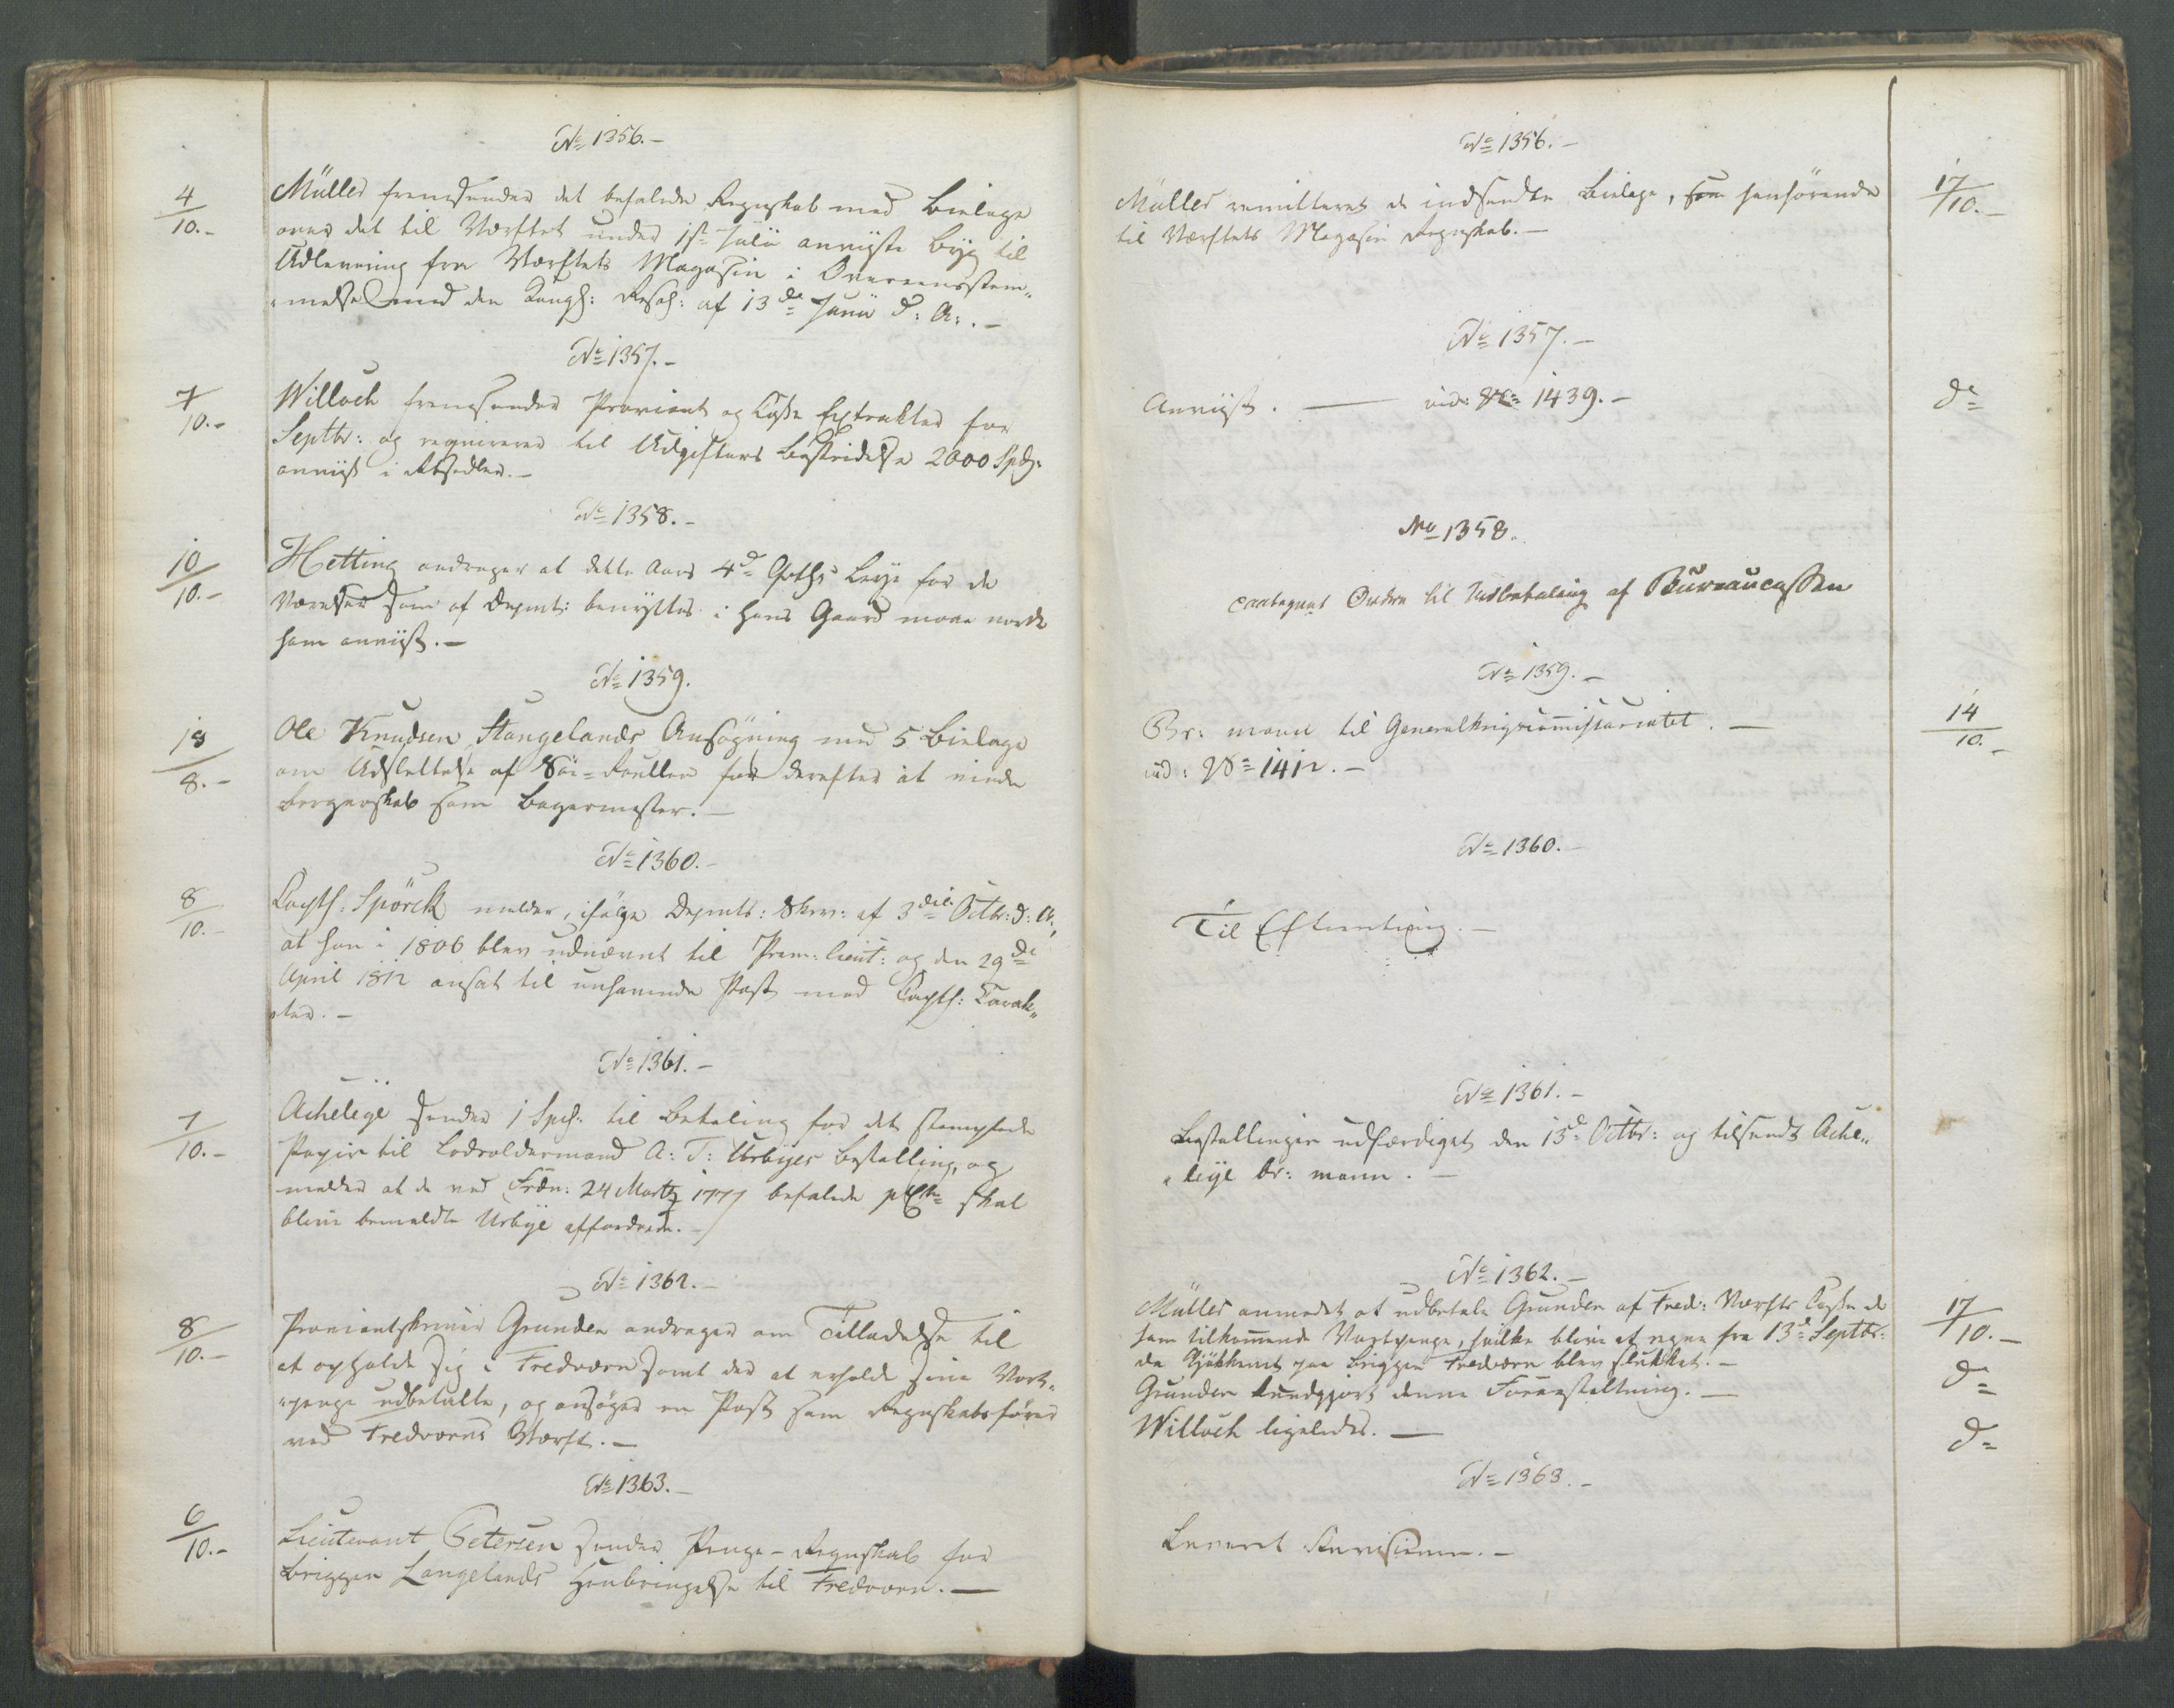 No 1356.-
4/10.-
Müller fremsender det befalede Regnskab med Bielage
over det til Værftet under 1ste Julii anviiste Byg til
Udlevering fra Værftets Magasin i Overeensstem„
„melse med den Kongl: Resol: af 13de Junii d: A:.-
No 1357.-
7/10.-
Willoch fremsender Proviant og Casse Extrakter for
Septbr: og reqvirerer til Udgifters Bestridelse 2000 Spd:
anviist i Rbsedler.-
No 1358.-
10/10.-
Hetting andrager at dette Aars 4de Qvtls Leye for de
Værelser som af Depmts: benyttes i hans Gaard maae vorde
ham anviist.-
No 1359.
18/8.-
Ole Knudsen Stangelands Ansøgning med 5 Bielage
om Udslettelse af Söe-Roullen for derefter at vinde
Borgerskab som Bagermester.-
No 1360.-
8/10.-
Captl: Spörck melder, ifølge Depmts: Skriv: af 3die Octbr: d: A:,
at han i 1806 blev udnævnt til Prem: Lieut: og den 29de
April 1812 ansat til unhavende Post med Captl: Carak„
„ter.-
No 1361.-
7/10.-
Acheleye sender 1 Spd: til Betaling for det stemplede
Papir til Lodsoldermand A: T: Urbyes Bestalling, og
melder at de ved Frdn: 24 Martz 1777 befalede skal
blive bemeldte Urbye affordrede.-
No 1362.-
8/10.-
Proviantskriver Grunden andrager om Tilladelse til
at opholde sig i Fredværn samt der at erholde sine Vart„
„penge udbetalte, og ansøger en Post som Regnskabsfører
ved Fredværns Værft.-
No 1363.-
6/10.-
Lieutenant Petersen sender Penge-Regnskab for
Briggen Langelands Henbringelse til Fredværn.-
No 1356.-
Müller remitteret de indsendte Bielage, som henhørende
til Værftets Magasin Regnskab.-
17/10.-
No 1357.-
Anviist. - vid: No 1439.-
do
No 1358.
contegnet Ordre til Udbetaling af Bureaucassen
No 1359.-
Br: mann til Generalkrigscommissariatet.-
vid: No 1412.-
14/10.-
No 1360.-
Til Efterretning.-
No 1361.-
Bestallingen udfærdiget den 15de Octbr: og tilsendt Ache„
„leye br: mann.-
No 1362.-
Müller anmodet at udbetale Grunden af Fred: Værfts Casse de
ham tilkommende Vartpenge, hvilke blive at regne fra 13de Septbr:
da Togtet paa Briggen Fredværn blev sluttet.-
Grunden kundgjort denne Foranstaltning.-
Willoch ligeledes.-
17/10.-
do
do
No 1363.-
Leveret Revisionen.-